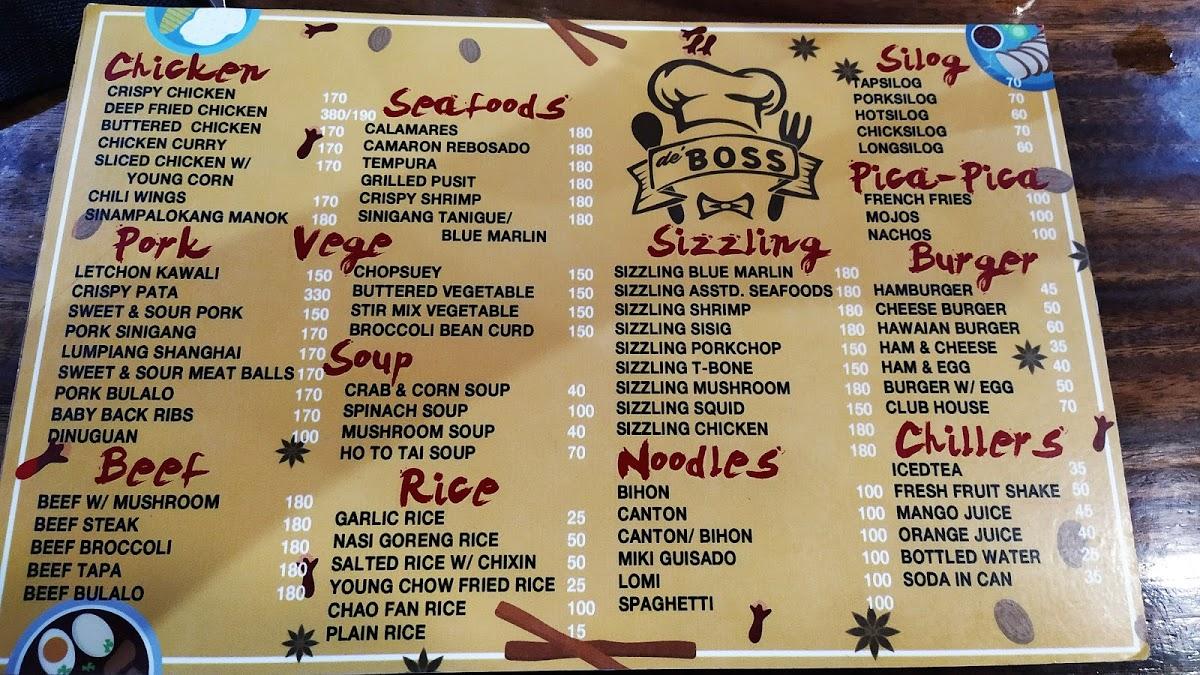 Chicken
CRISPY CHICKEN 170
DEEP FRIED CHICKEN 380/190
BUTTERED CHICKEN 170
CHICKEN CURRY 170
SLICED CHICKEN W/ 170
YOUNG CORN
CHILI WINGS 170
SINAMPALOKANG MANOK 180
Pork
LETCHON KAWALI 150
CRISPY PATA 330
SWEET & SOUR PORK 150
PORK SINIGANG 170
LUMPIANG SHANGHAI 170
SWEET & SOUR MEAT BALLS 170
PORK BULALO 170
BABY BACK RIBS 170
DINUGUAN 100
Beef
BEEF W/ MUSHROOM 180
BEEF STEAK 180
BEEF BROCCOLI 180
BEEF TAPA 180
BEEF BULALO 180
Seafoods
CALAMARES 180
CAMARON REBOSADO 180
TEMPURA 180
GRILLED PUSIT 180
CRISPY SHRIMP 180
SINIGANG TANIGUE/ 180
BLUE MARLIN
Vege
CHOPSUEY 150
BUTTERED VEGETABLE 150
STIR MIX VEGETABLE 150
BROCCOLI BEAN CURD 150
Soup
CRAB & CORN SOUP 40
SPINACH SOUP 100
MUSHROOM SOUP 40
HO TO TAI SOUP 70
Rice
GARLIC RICE 25
NASI GORENG RICE 50
SALTED RICE W/ CHIXIN 50
YOUNG CHOW FRIED RICE 25
CHAO FAN RICE 100
PLAIN RICE 15
de' BOSS
Sizzling
SIZZLING BLUE MARLIN 180
SIZZLING ASSTD. SEAFOODS 180
SIZZLING SHRIMP 180
SIZZLING SISIG 180
SIZZLING PORKCHOP 150
SIZZLING T-BONE 150
SIZZLING MUSHROOM 180
SIZZLING SQUID 150
SIZZLING CHICKEN 180
180
Noodles
BIHON 100
CANTON 100
CANTON/ BIHON 100
MIKI GUISADO 100
LOMI 100
SPAGHETTI 100
Silog
TAPSILOG 70
PORKSILOG 70
HOTSILOG 60
CHICKSILOG 70
LONGSILOG 60
Pica-Pica
FRENCH FRIES 100
MOJOS 100
NACHOS 100
Burger
HAMBURGER 45
CHEESE BURGER 50
HAWAIAN BURGER 60
HAM & CHEESE 35
HAM & EGG 40
BURGER W/ EGG 50
CLUB HOUSE 70
Chillers
ICEDTEA 35
FRESH FRUIT SHAKE 50
MANGO JUICE 45
ORANGE JUICE 40
BOTTLED WATER 25
SODA IN CAN 35